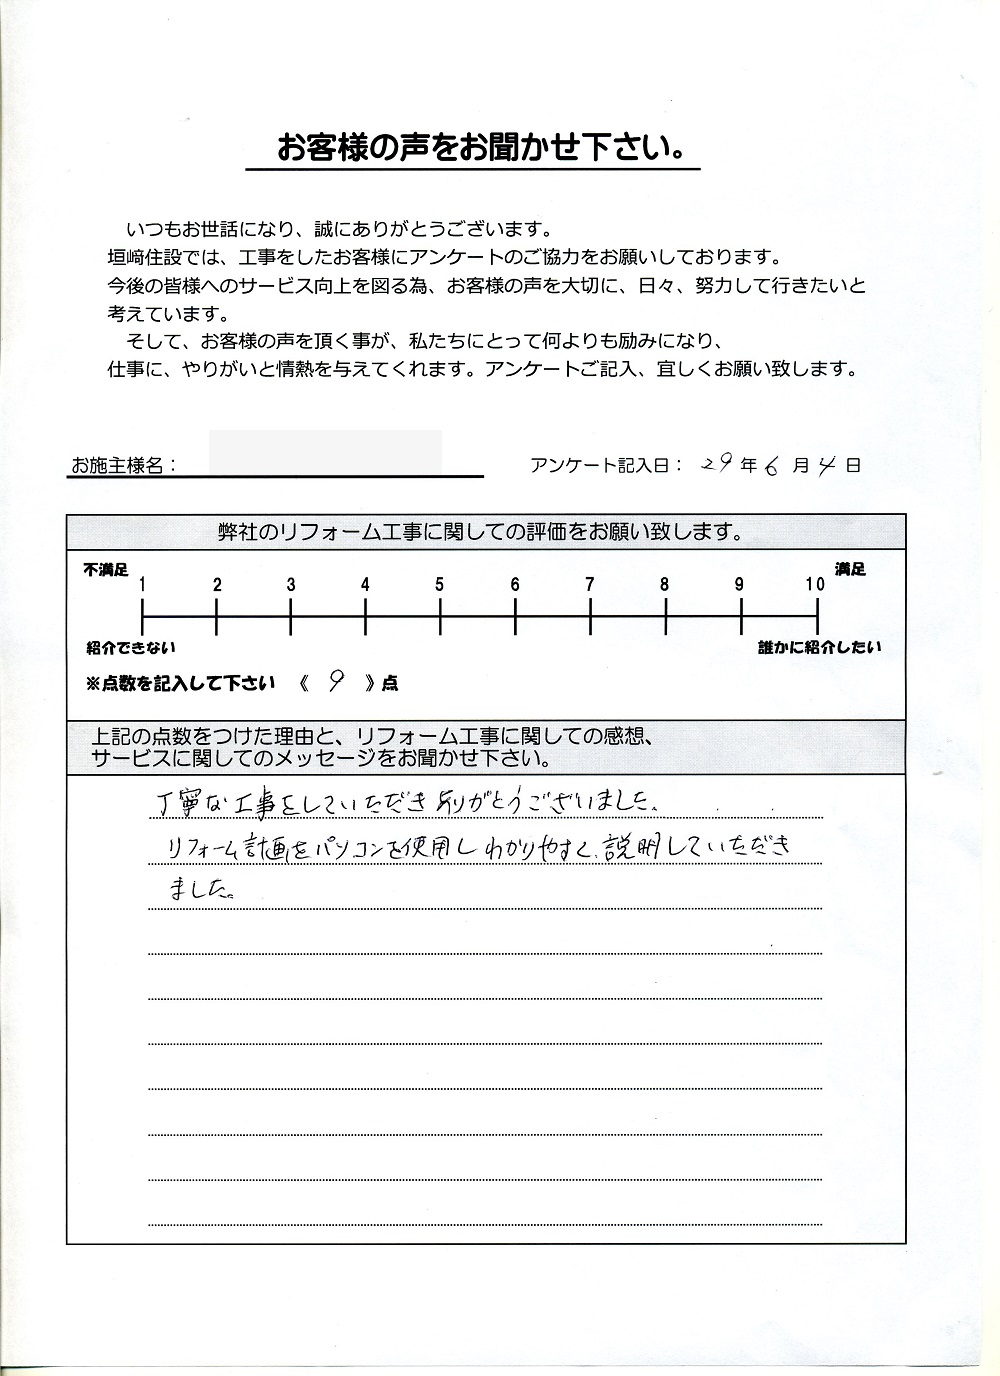 お客様の声をお聞かせ下さい。
いつもお世話になり、誠にありがとうございます。
垣﨑住設では、工事をしたお客様にアンケートのご協力をお願いしております。
今後の皆様へのサービス向上を図る為、お客様の声を大切に、日々、努力して行きたいと
考えています。
そして、お客様の声を頂く事が、私たちにとって何よりも励みになり、
仕事に、やりがいと情熱を与えてくれます。アンケートご記入、宜しくお願い致します。
お施主様名：
アンケート記入日： 29 年 6 月 4 日
弊社のリフォーム工事に関しての評価をお願い致します。
不満足 満足
1 2 3 4 5 6 7 8 9 10
紹介できない 誰かに紹介したい
※点数を記入して下さい 《 9 》点
上記の点数をつけた理由と、リフォーム工事に関しての感想、
サービスに関してのメッセージをお聞かせ下さい。
丁寧な工事をしていただきありがとうございました。
リフォーム計画をパソコンを使用しわかりやすく、説明していただき
ました。